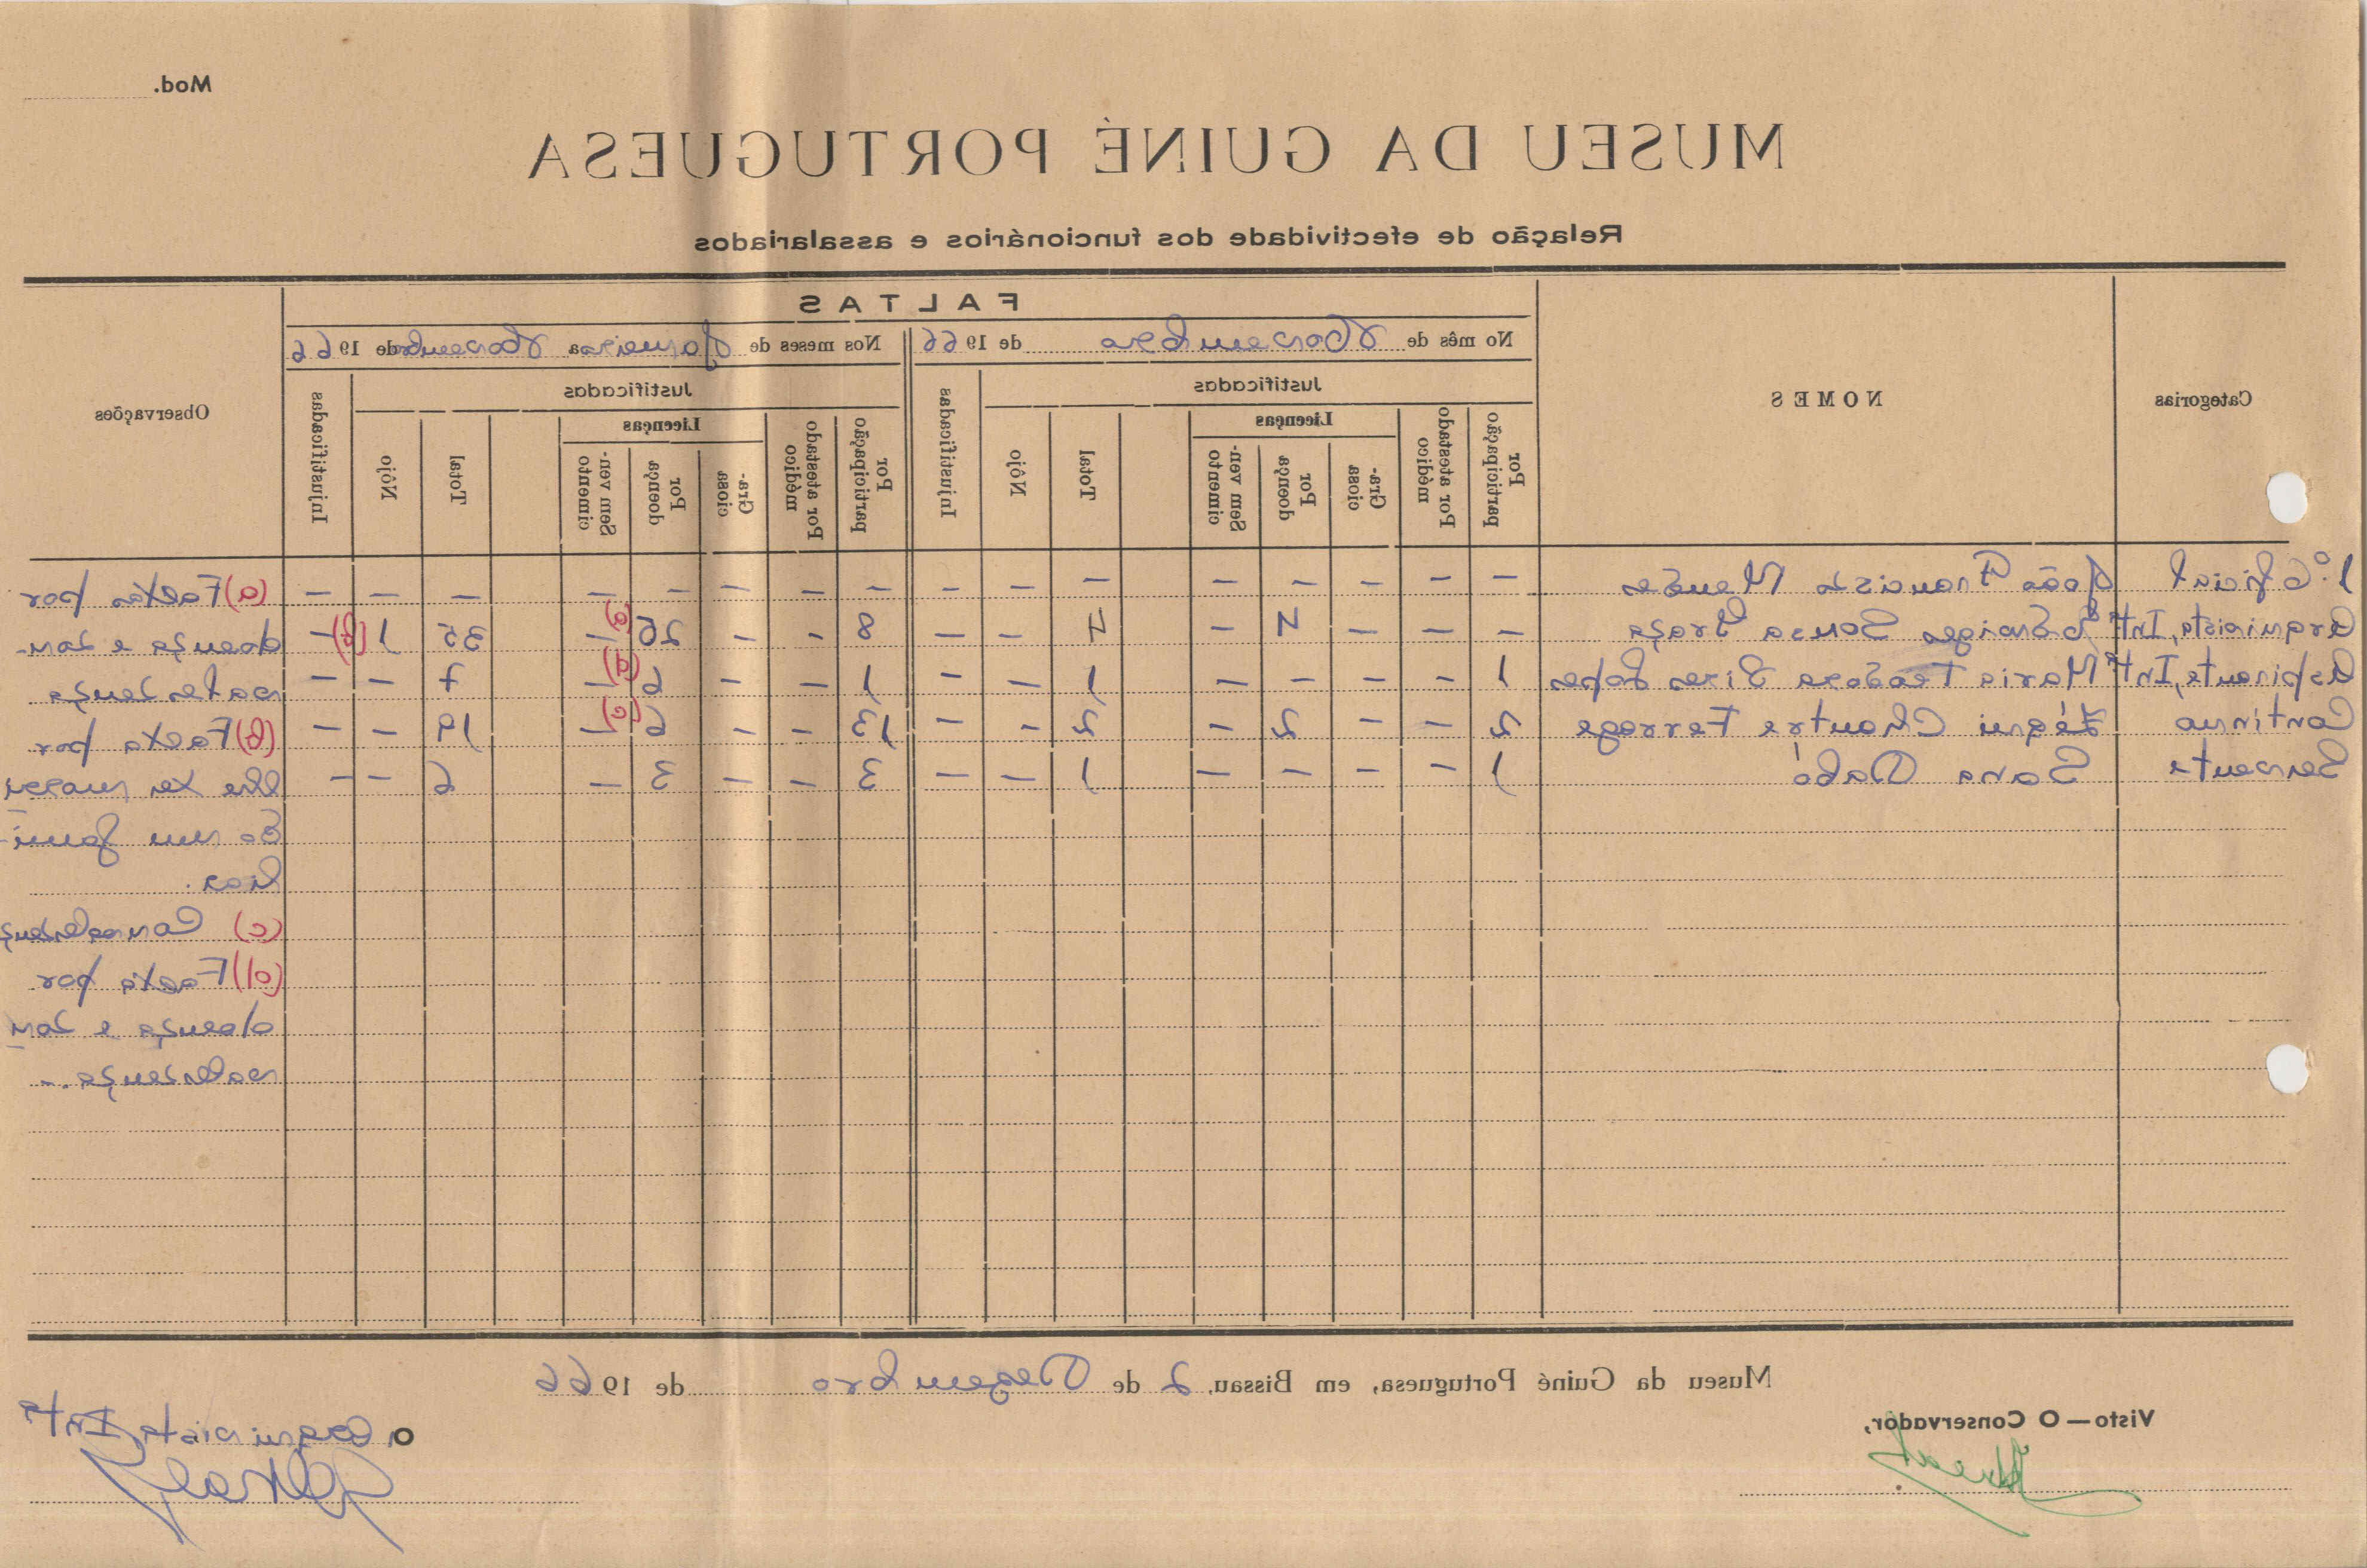 Mod.
MUSEU DA GUINÉ PORTUGUESA
Relação de efectividade dos funcionários e assalariados
Categorias
NOMES
FALTAS
No mês de Novembro de 1966
Nos meses de Janeiro a Novembro de 1966
Observações
Justificadas
Por participação
Por atestado médico
Licenças
Graciosa
Por doença
Sem vencimento
Total
Nôjo
Injustificadas
Justificadas
Por participação
Por atestado médico
Licenças
Graciosa
Por doença
Sem vencimento
Total
Nôjo
Injustificadas
1.º Oficial João Francisco Mendes — — — — — — — — — — — — — — — —
Arquivista, Intº Sousa — — — 4 — 4 — — 8 - — 26 — (a) 35 1 (b) —
Aspirante, Intº Maria Pires Lopes 1 — — — — 1 — — 1 — — 6 — (d) 7 — —
Contínuo Ferrage 2 — — 2 — 2 — — 13 — — 6 — (c) 19 — —
Servente Sana Dabó 1 — — — — 1 — — 3 — — 3 — 6 — —
(a) Falta por
doença e con-
valescença
(b) Falta por
lhe ter nasci
do um fami-
liar.
(c) Convalescenç
(d) Falta por
doença e con
valescença.-
Museu da Guiné Portuguesa, em, Bissau, 2 de Dezembro de 1966
Visto — O Conservador,
O Arquivista, Intº